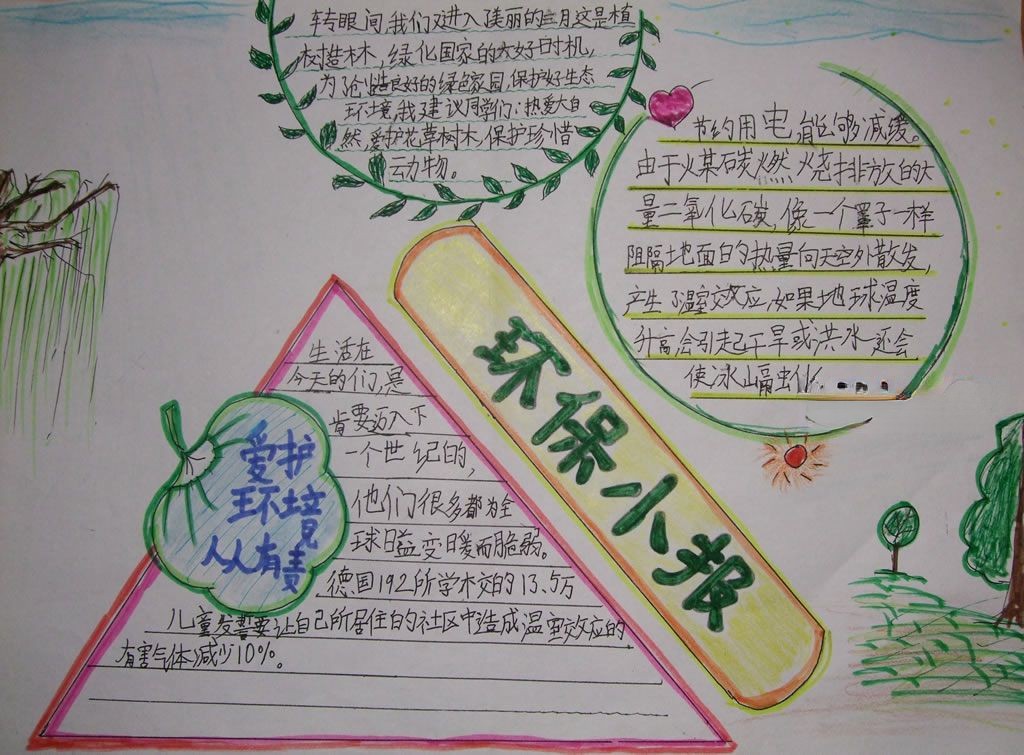 转眼间,我们又进入美丽的三月,这是植
树造林,绿化国家的大好时机,
为创造良好的绿色家园,保护好生态
环境,我建议同学们:热爱大自
然,爱护花草树木,保护珍惜
动物。
节约用电能够减缓。
由于火某碳燃火烧排放的大
量二氧化碳,像一个罩子一样
阻隔地面的热量向天空外散发,
产生了温室效应,如果地球温度
升高,会引起干旱或洪水,还会
使冰山融化....
环保小报
爱护
环境
人人有责
生活在
今天的们,是
肯要迈入下
一个世纪的,
他们很多都为全
球日益变暖而脆弱。
德国192所学校的13.5万
儿童发誓要让自己所居住的社区中造成温室效应的
有害气体减少10%。